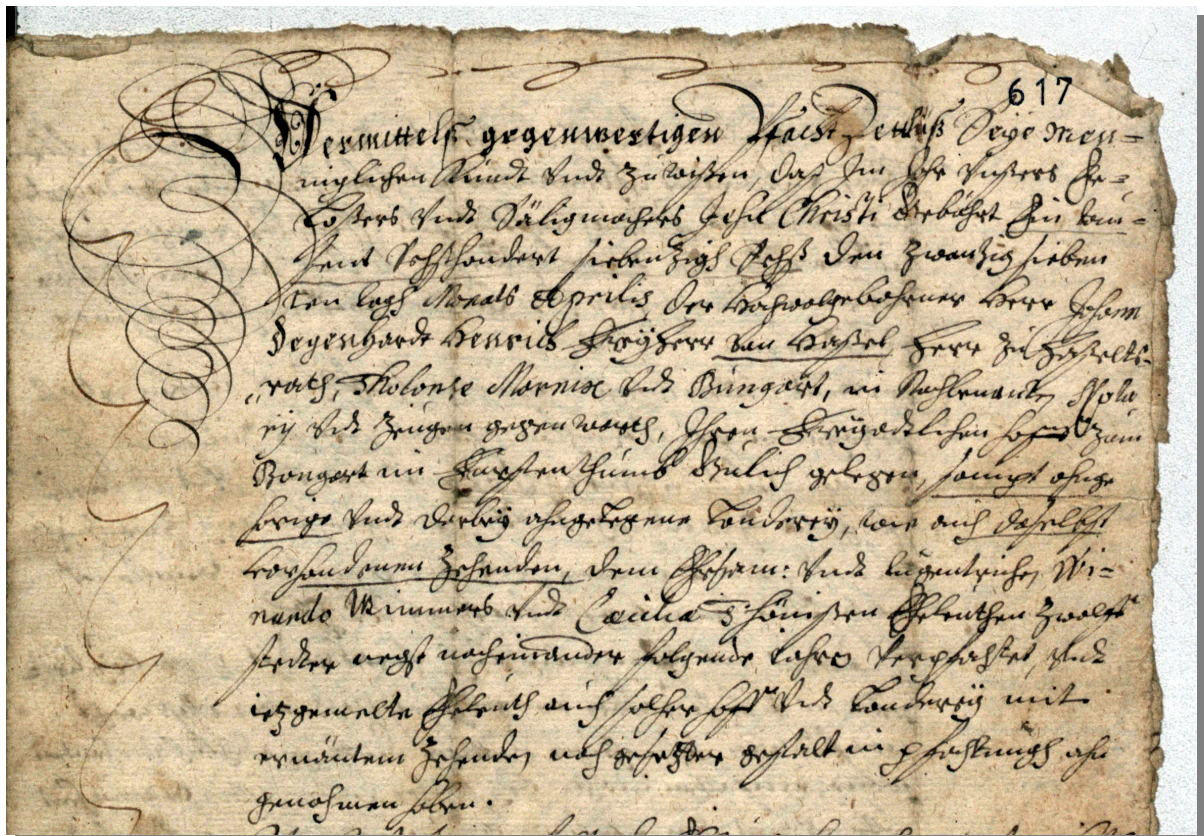 617
Vermittels gegenwertigen Pfacht Zettulß Seye Men=
niglichen Kündt undt zu wißen, daß Im Jahr unßers Er=
loßers undt Säligmachers Jesu Christi Gebührt Ein tau=
sent Sechshondert siebenzigh Sechß den zwanzig sieben
ten tagh Monats Aprilis der Hochwolgebohrner Herr Johann
Degenhardt Henrich Freyherr von Haßel, Herr zu Haßelts=
rath, undt Bungart, in Nachbenanten Nota
rij undt Zeugen gegenwarth, Ihren Freyadtlichen hoff zum
Bongart im Furstenthumb Gulich gelegen, sampt ahnge
horige undt darbey ahngelegene Länderey, wie auch daselbst
vorhandenen Zehenden, dem Ehrsam: undt tugentrichen Wi=
nando Wimmers undt Cacilia Schönißen Eheleuthen zwolff
negst nacheinander folgende Jahren verpfachtet, undt
ietzgemelte Eheleuth auch solcher hoff undt Länderey mit
ernäntem Zehenden nachgesetzter gestalt in pfachtungh ahn
genohmen haben.